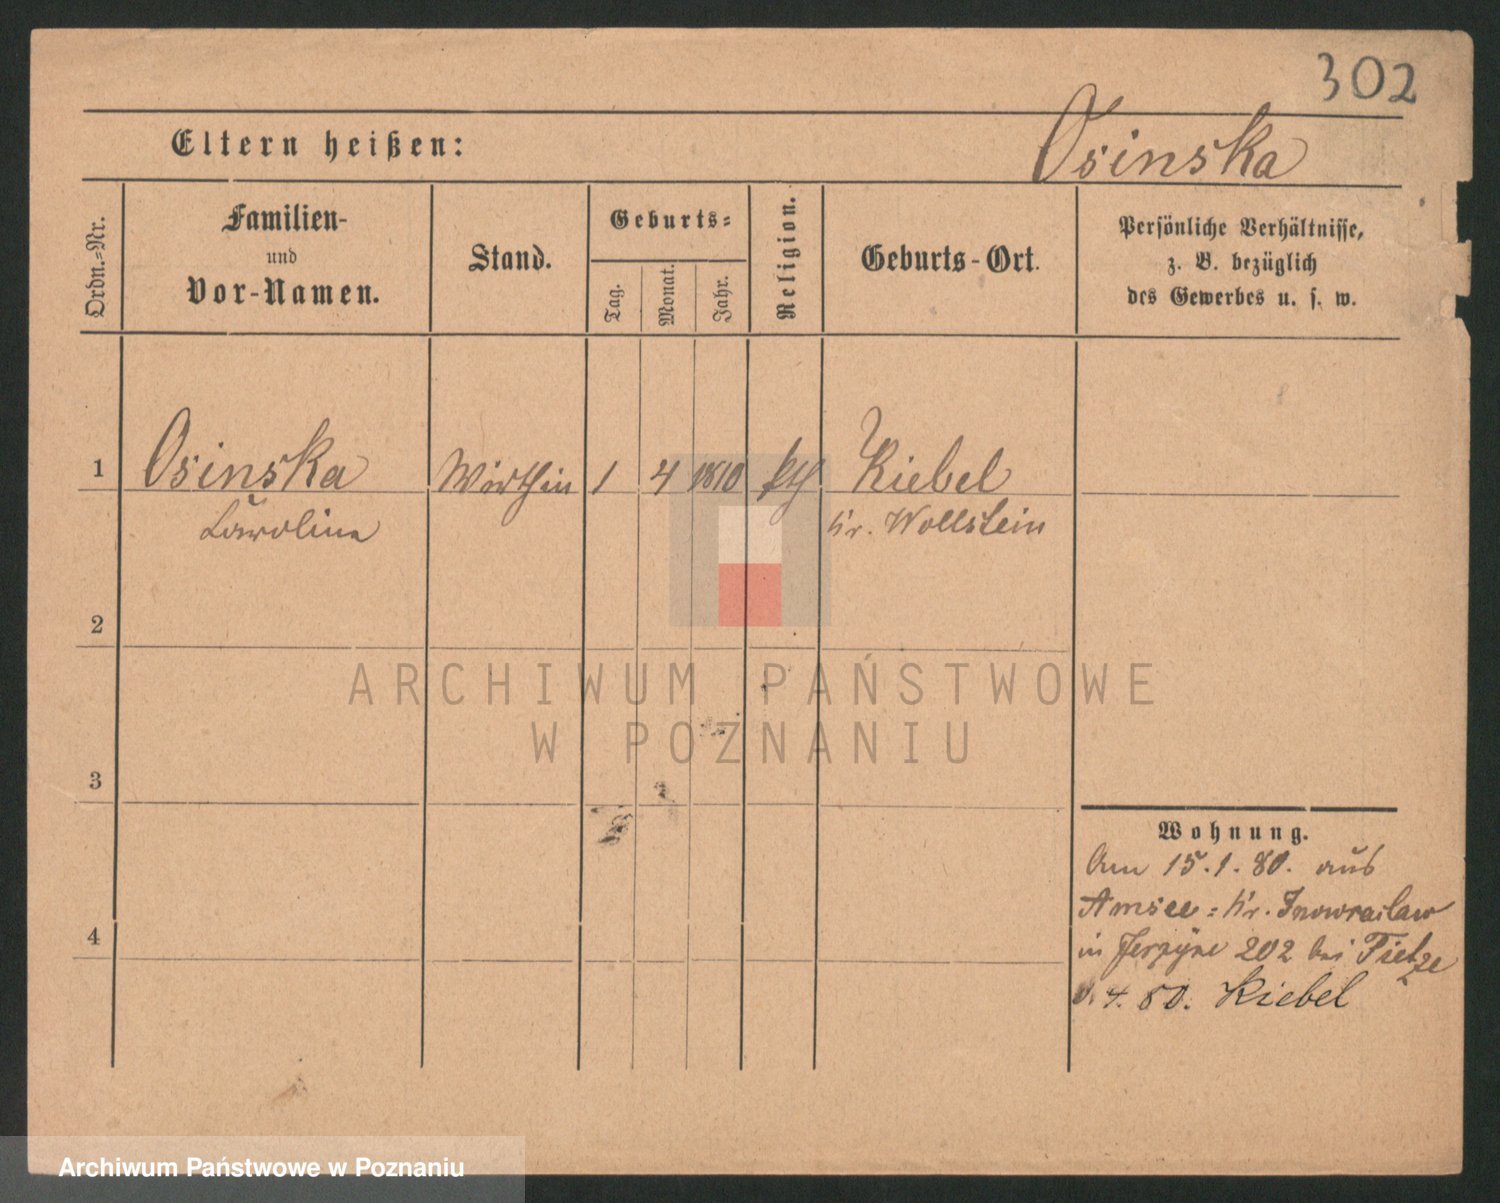 302
Eltern heißen:
Osinska
Ordn.-Nr.
Familien-
und
Vor-Namen.
Stand.
Geburts-
Tag.
Monat.
Jahr.
Religion.
Geburts-Ort.
Persönliche Verhältnisse,
z. B. bezüglich
des Gewerbes u. s. w.
1
Osinska
Wirthin
1
4
1810
kth
Kiebel
Caroline
Kr. Wollstein
2
ARCHIWUM PAŃSTWOWE
W POZNANIU
3
Wohnung.
Am 15.1.80. aus
Amsee - Kr. Inowraclaw
4
in 202 bei Tietze
4. 80. Kiebel
Archiwum Państwowe w Poznaniu